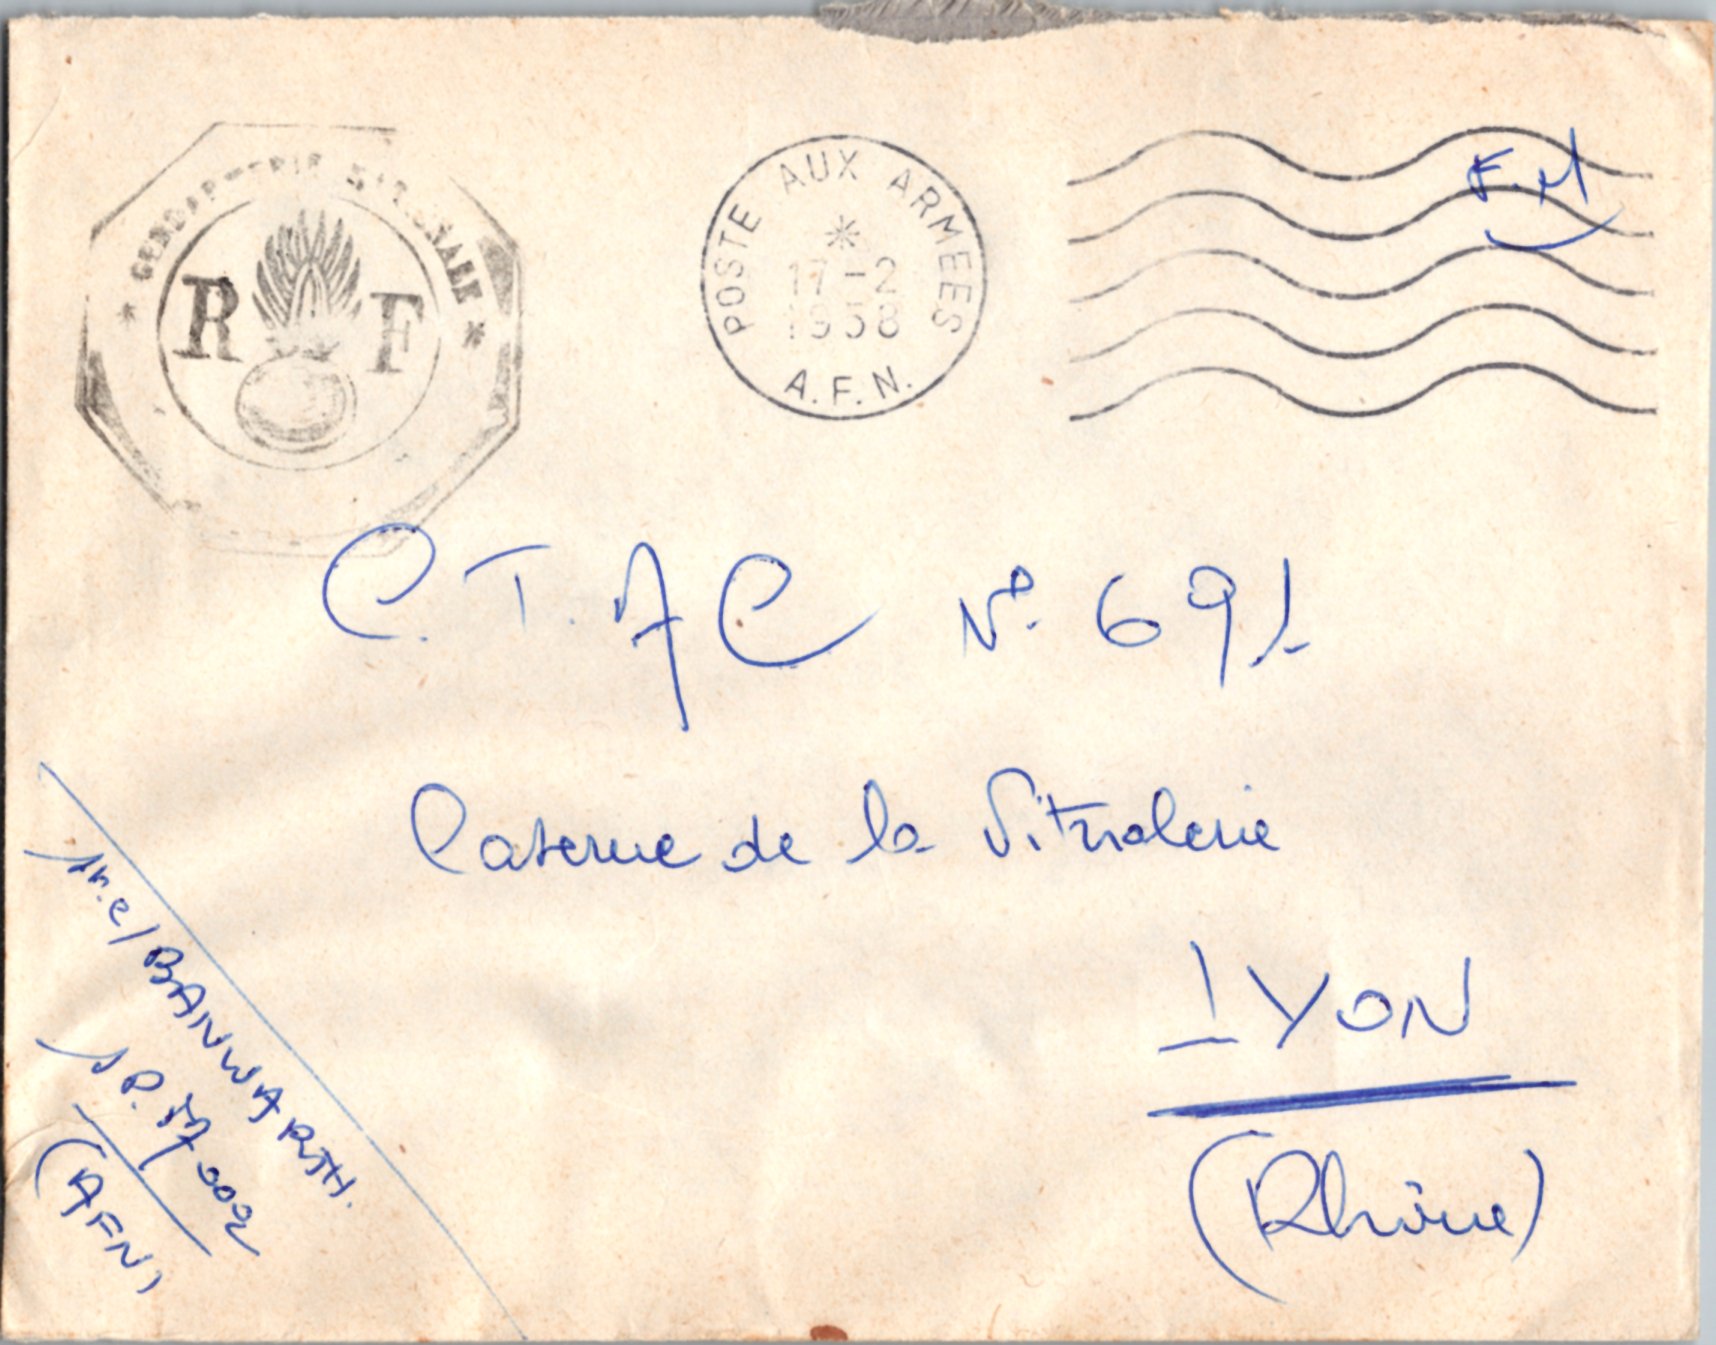 GENDARMERIE NATIONALE
R F
POSTE AUX ARMEES
17-2
1958
A.F.N.
F.M
C.T.A C N° 691
Caserne de la Vitriolerie
LYON
(Rhône)
BANWARTH.
S P. M 0002
(AFN)